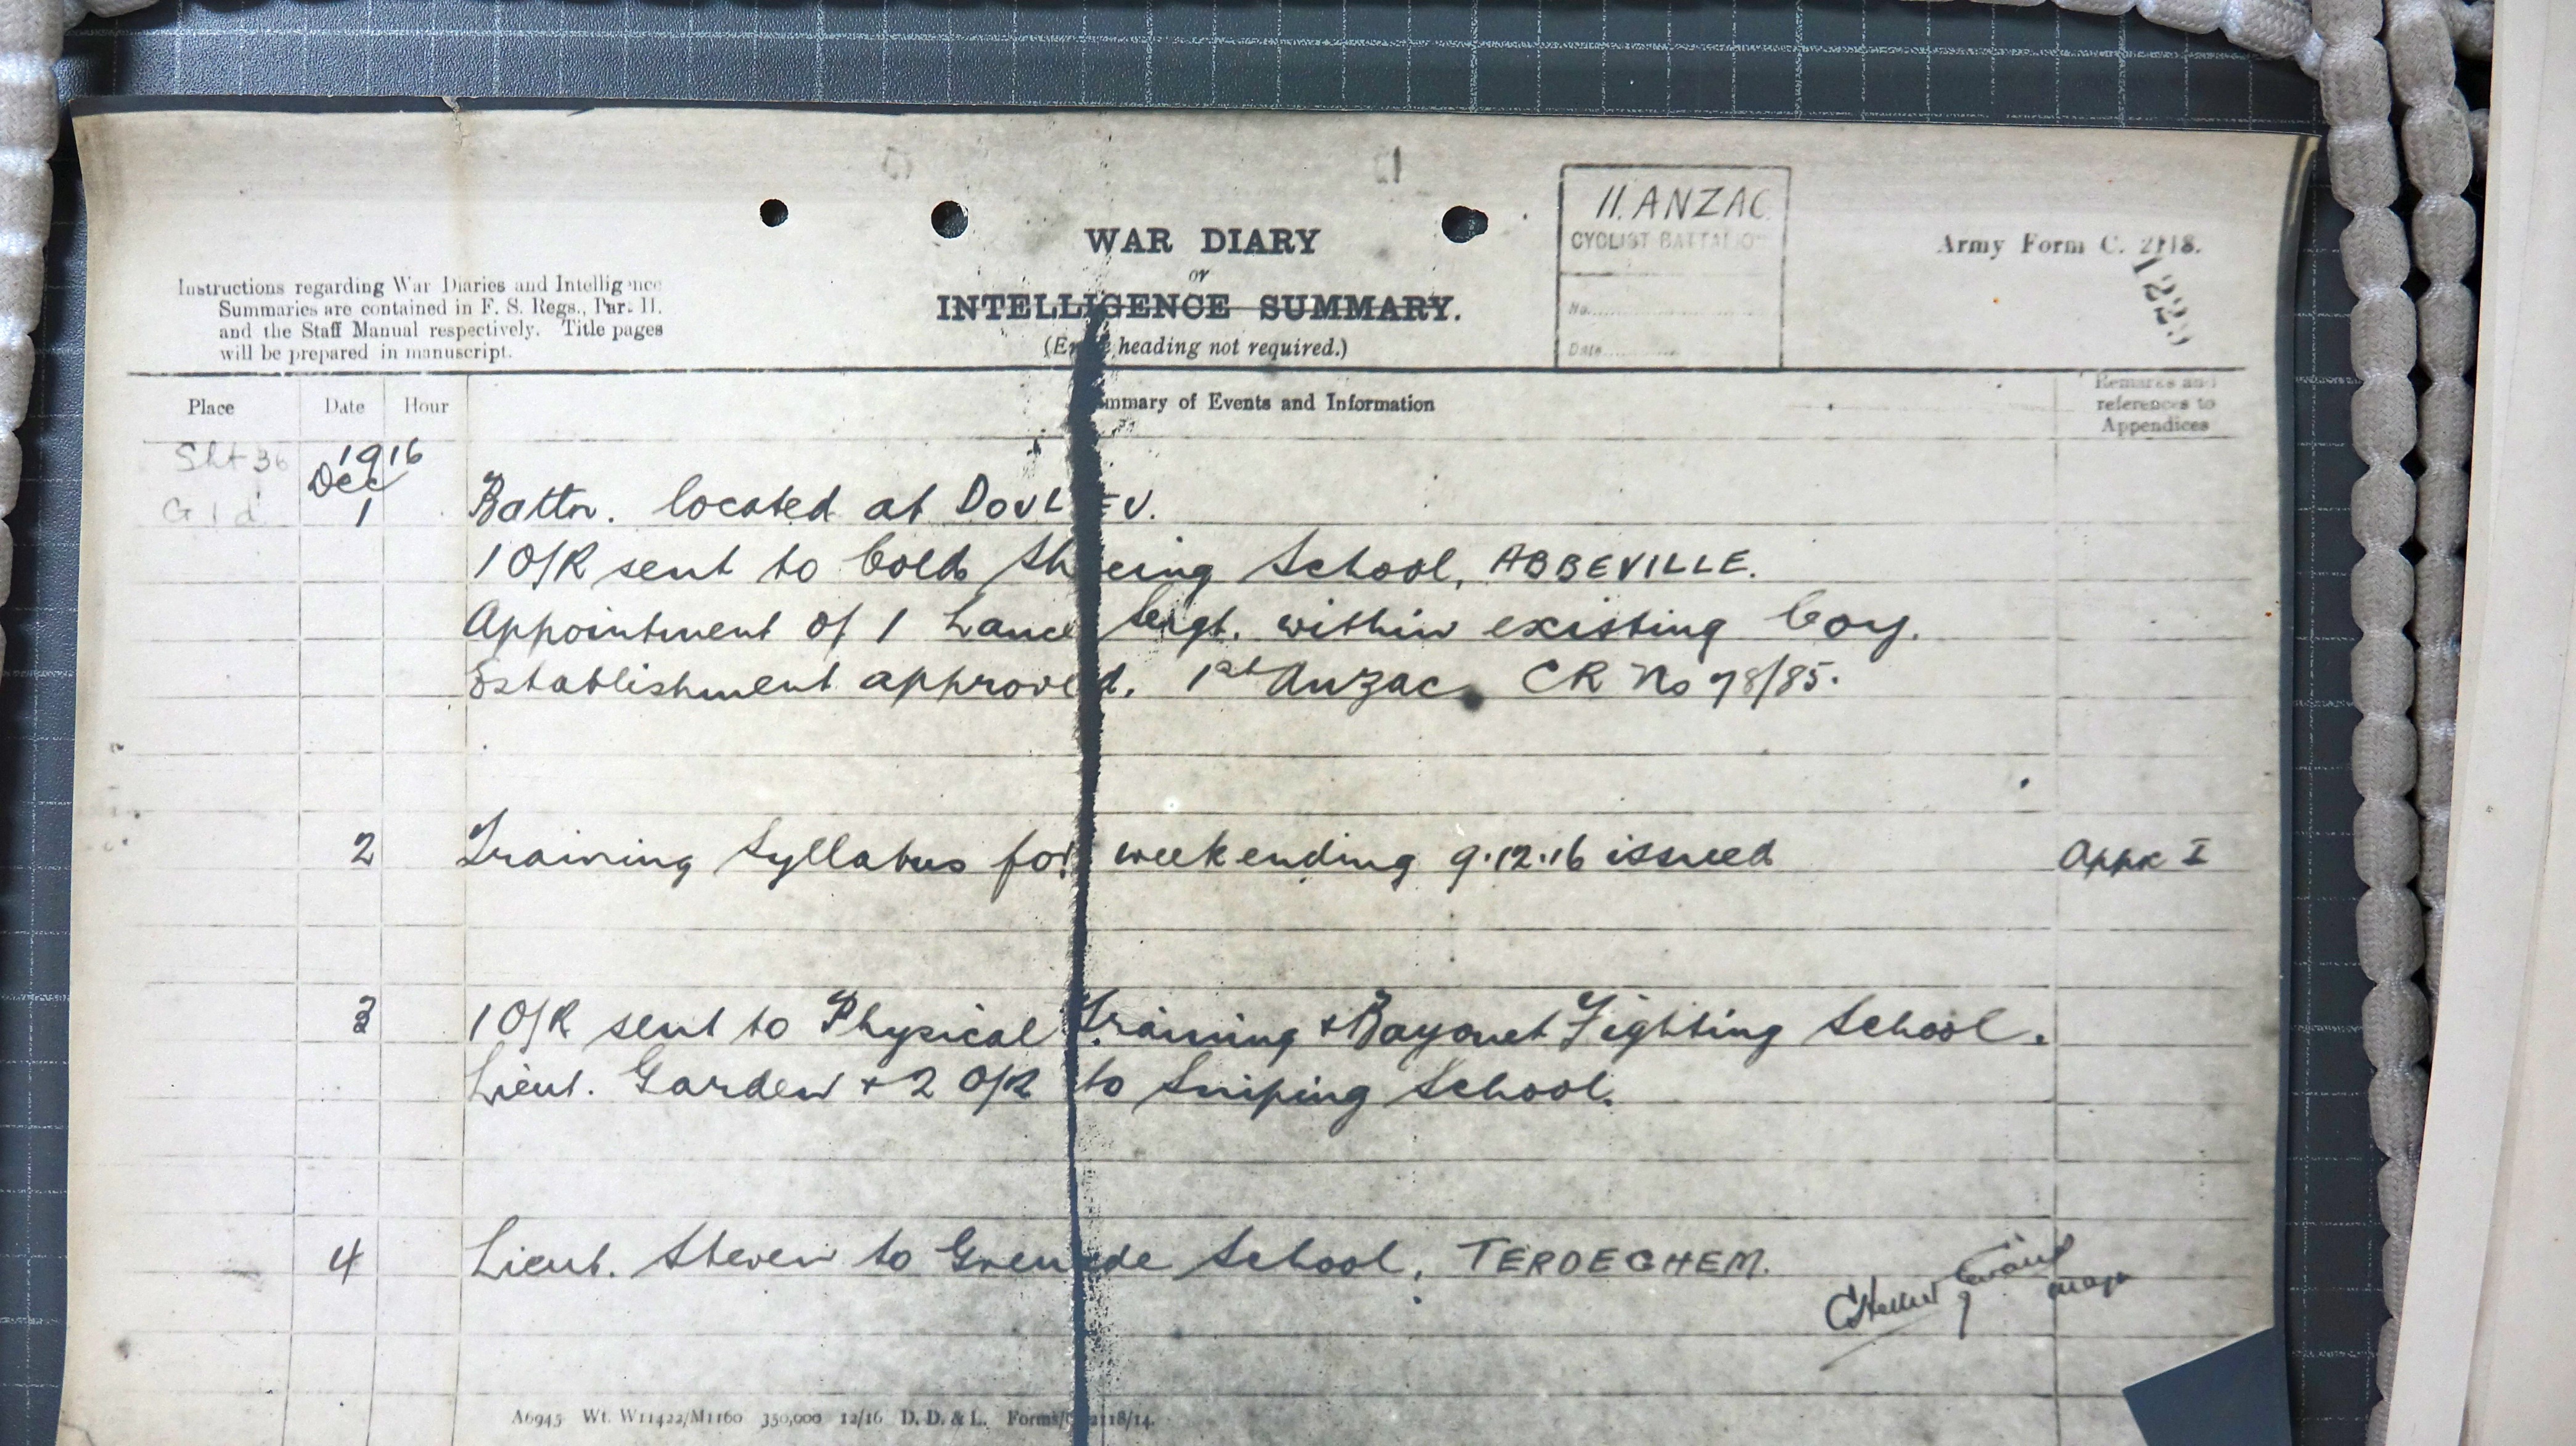 11. ANZAC
CYCLIST BATTALION
No.
Date
WAR DIARY
or
INTELLIGENCE SUMMARY.
(Erase heading not required.)
Army Form C. 2118.
Instructions regarding War Diaries and Intelligence
Summaries are contained in F. S. Regs., Part II.
and the Staff Manual respectively. Title pages
will be prepared in manuscript.
Place Date Hour Summary of Events and Information Remarks and references to Appendices
Sht 36 1916
Dec
G 1 d 1 Battn. located at DOULIEU.
1 O/R sent to Cold Shoeing School, ABBEVILLE.
Appointment of 1 Lance Sergt. within existing Coy.
Establishment approved. 1st Anzac CR No 78/85.
2 Training Syllabus for week ending 9.12.16 issued Appx I
3 1 O/R sent to Physical Training + Bayonet Fighting School.
Lieut. Garden + 2 O/R to Sniping School.
4 Lieut. Steven to Grenade School, TERDEGHEM.
Major
A6945 Wt. W11422/M1160 350,000 12/16 D. D. & L. Forms/C. 2118/14.